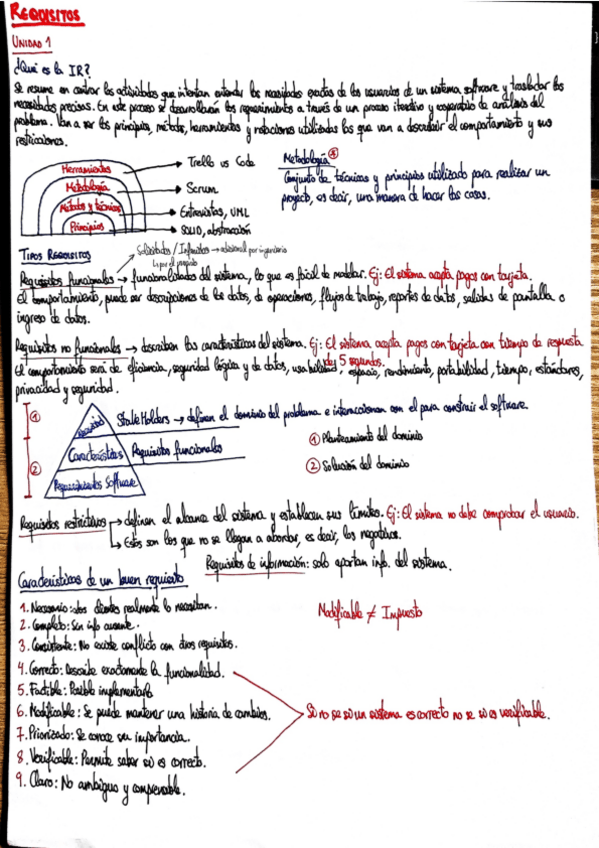 REQUISITOS
UNIDAD 1
¿Qué es la IR?
Se resume en centrar las actividades que intentan entender las necesidades exactas de los usuarios de un sistema software y trasladar las
necesidades precisas. En este proceso se desarrollarán los requerimientos a través de un proceso iterativo y cooperativo de análisis del
problema. Van a ser los principios, métodos, herramientas y notaciones utilizadas las que van a describir el comportamiento y sus
restricciones.
Herramientas → Trello vs Code
Metodología → Scrum
Métodos y técnicas → Entrevistas, UML
Principios → SOLID, abstracción
Metodología
Conjunto de técnicas y principios utilizado para realizar un
proyecto, es decir, una manera de hacer las cosas.
TIPOS REQUISITOS
Solicitados / Infinitos → adicional por ingeniería
Requisitos funcionales → funcionalidades del sistema, lo que es fácil de modelar. Ej: El sistema acepta pagos con tarjeta.
El comportamiento, puede ser descripciones de los datos, de operaciones, flujos de trabajo, reportes de datos, salidas de pantalla o
ingreso de datos.
Requisitos no funcionales → describen las características del sistema. Ej: El sistema acepta pagos con tarjeta con tiempo de respuesta
de 5 segundos.
El comportamiento será de eficiencia, seguridad lógica y de datos, usabilidad, espacio, rendimiento, portabilidad, tiempo, estándares,
privacidad y seguridad.
①
②
Necesidad
StakeHolders → definen el dominio del problema e interaccionan con el para construir el software.
Características
Requisitos funcionales
Requerimientos Software
① Planteamiento del dominio
② Solución del dominio
Requisitos restrictivos → definen el alcance del sistema y establecen sus límites. Ej: El sistema no debe comprobar el usuario.
↳ Estos son los que no se llegan a abordar, es decir, los negativos.
Requisitos de información: solo aportan info. del sistema.
Características de un buen requisito
1. Necesario: los clientes realmente lo necesitan.
2. Completo: Sin info ausente.
3. Consistente: No existe conflicto con otros requisitos.
4. Correcto: Describe exactamente la funcionalidad.
5. Factible: Posible implementarlo
6. Modificable: Se puede mantener una historia de cambios.
7. Priorizado: Se conoce su importancia.
8. Verificable: Permite saber si es correcto.
9. Claro: No ambiguo y comprensible.
Modificable ≠ Impuesto
Si no se si un sistema es correcto no se si es verificable.